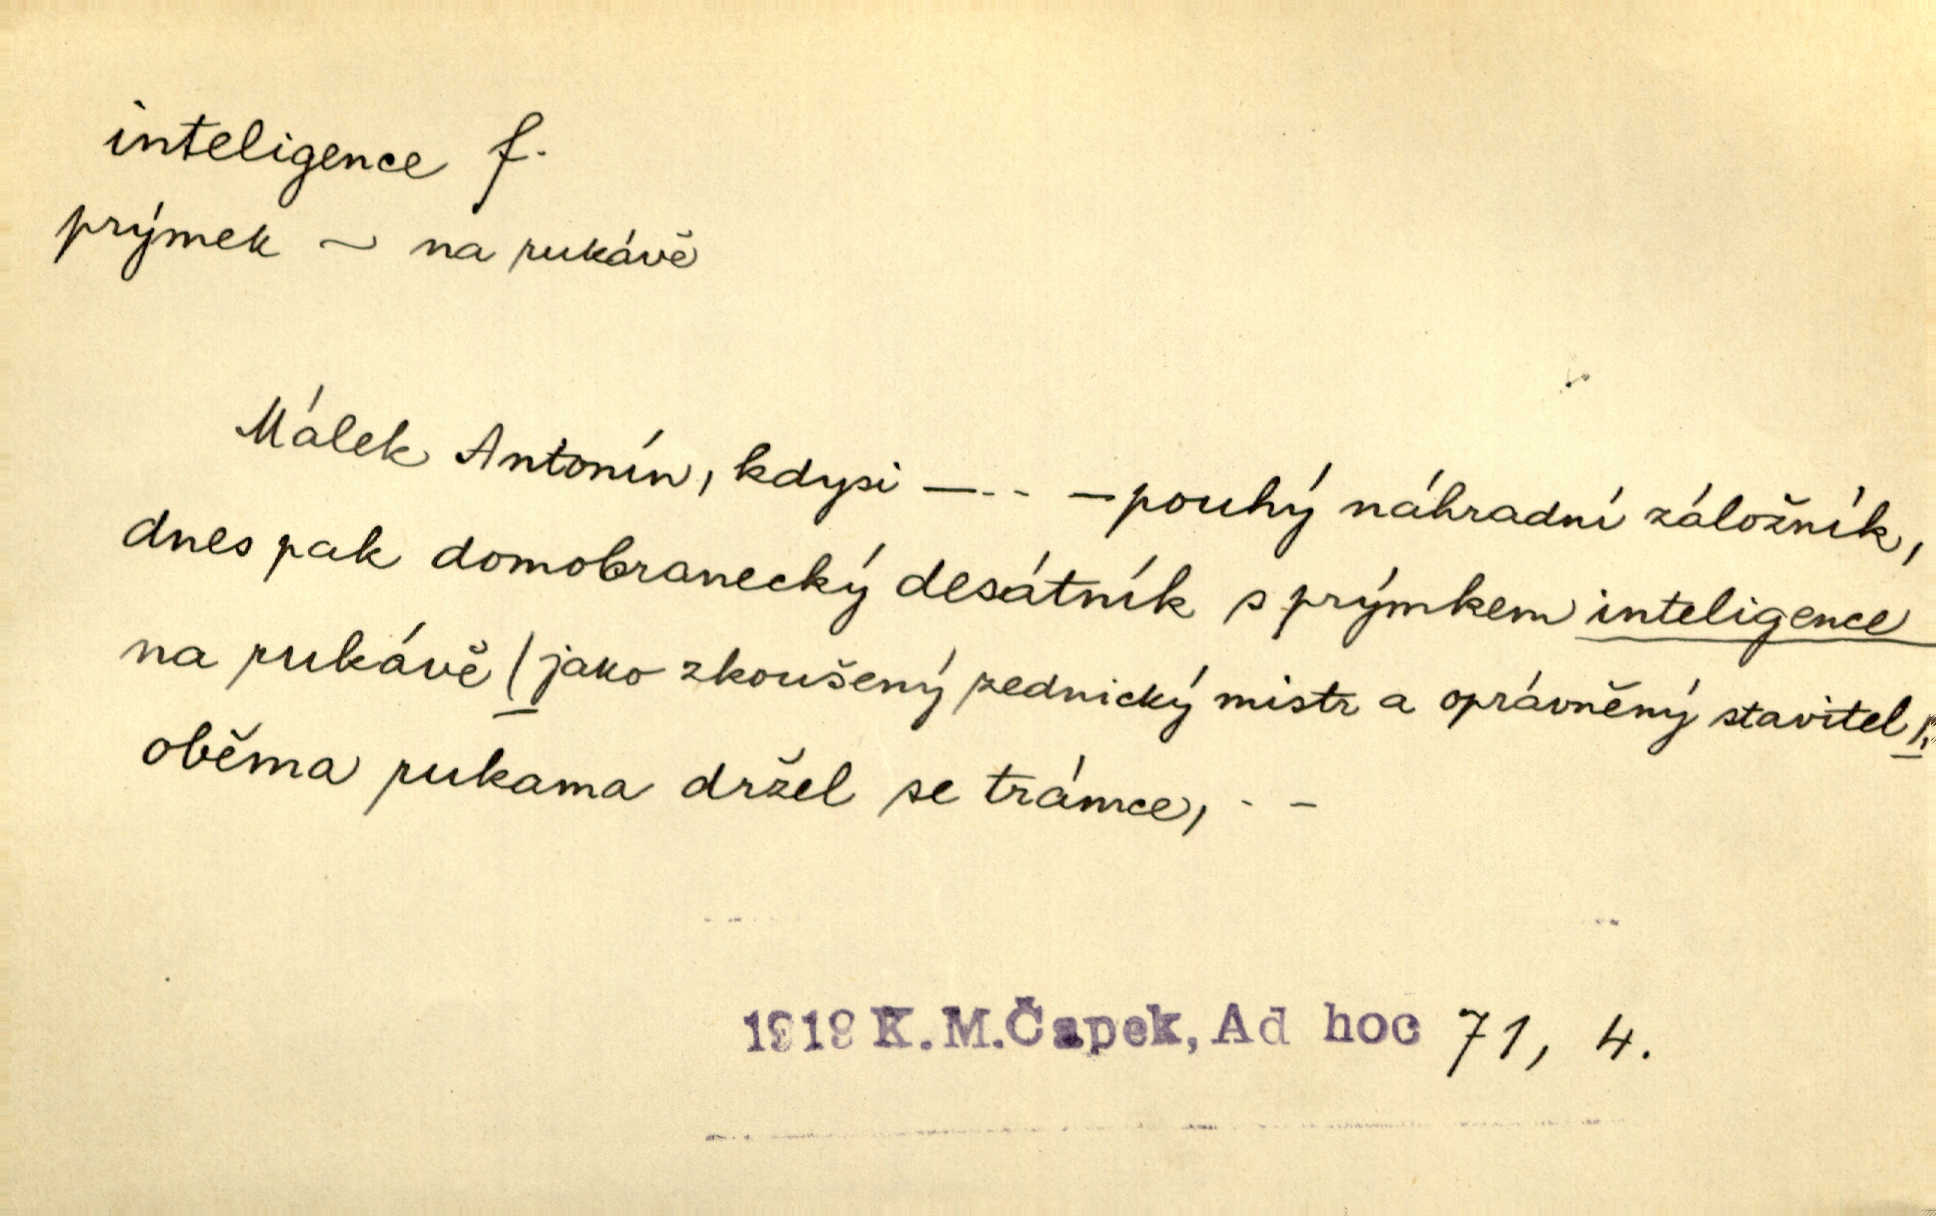 inteligence f.
prýmek ~ na rukávě
Málek Antonín, kdysi —.. — pouhý náhradní záložník,
dnes pak domobranecký desátník s prýmkem inteligence
na rukávě (jako zkoušený zednický mistr a oprávněný stavitel),
oběma rukama držel se trámce, - -
1919 K.M.Čapek, Ad hoc 71, 4.